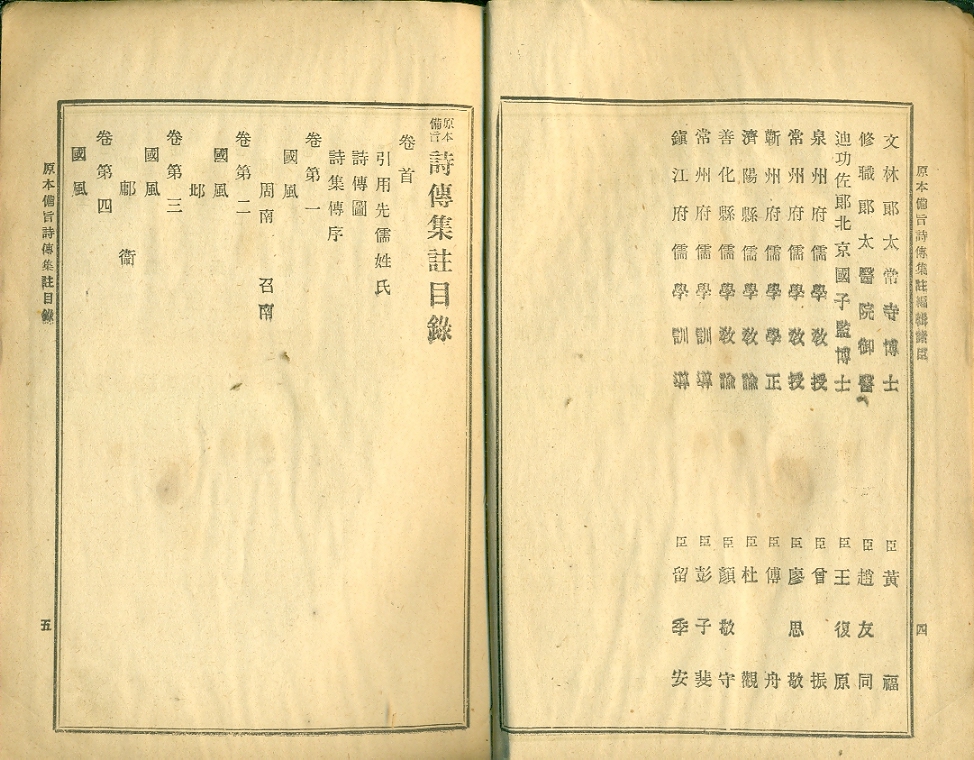 原本備旨詩傳集註編輯諸臣
四
文林郎太常寺博士 臣黃福
修職郎太醫院御醫 臣趙友同
迪功佐郎北京國子監博士 臣王復原
泉州府儒學教授 臣曾振
常州府儒學教授 臣廖思敬
蘄州府儒學學正 臣傅舟
濟陽縣儒學教諭 臣杜觀
善化縣儒學教諭 臣顏敬守
常州府儒學訓導 臣彭子斐
鎭江府儒學訓導 臣留季安
原本備旨詩傳集註目錄
卷首
引用先儒姓氏
詩傳圖
詩集傳序
卷第一
國風
周南 召南
卷第二
國風
邶
卷第三
國風
鄘 衞
卷第四
國風
原本備旨詩傳集註目錄
五